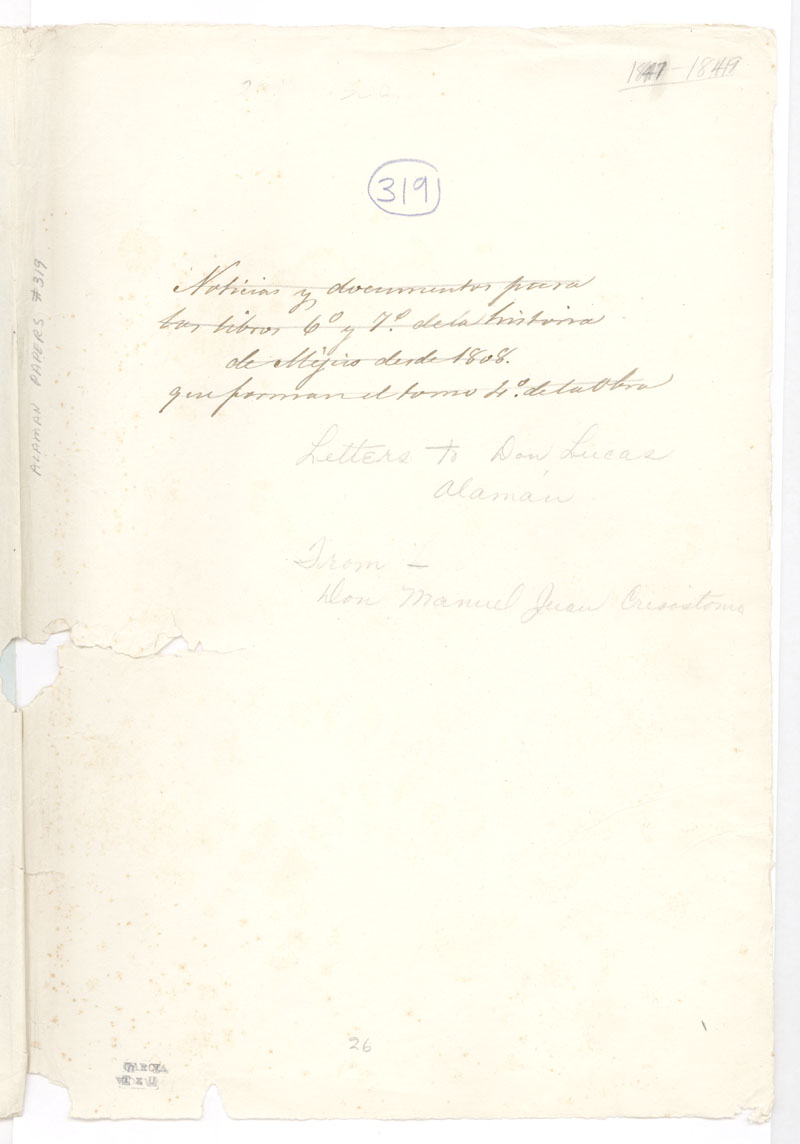 1847-1849
319
Noticias y documentos para
los libros 6º y 7º. de la historia
de Mejico desde 1808.
que forman el tomo 4º. de la Obra
Letters to Don Lucas
Alamán
From –
Don Manuel Juan Crisostomo
ALAMAN PAPERS #319
26
GARCIA